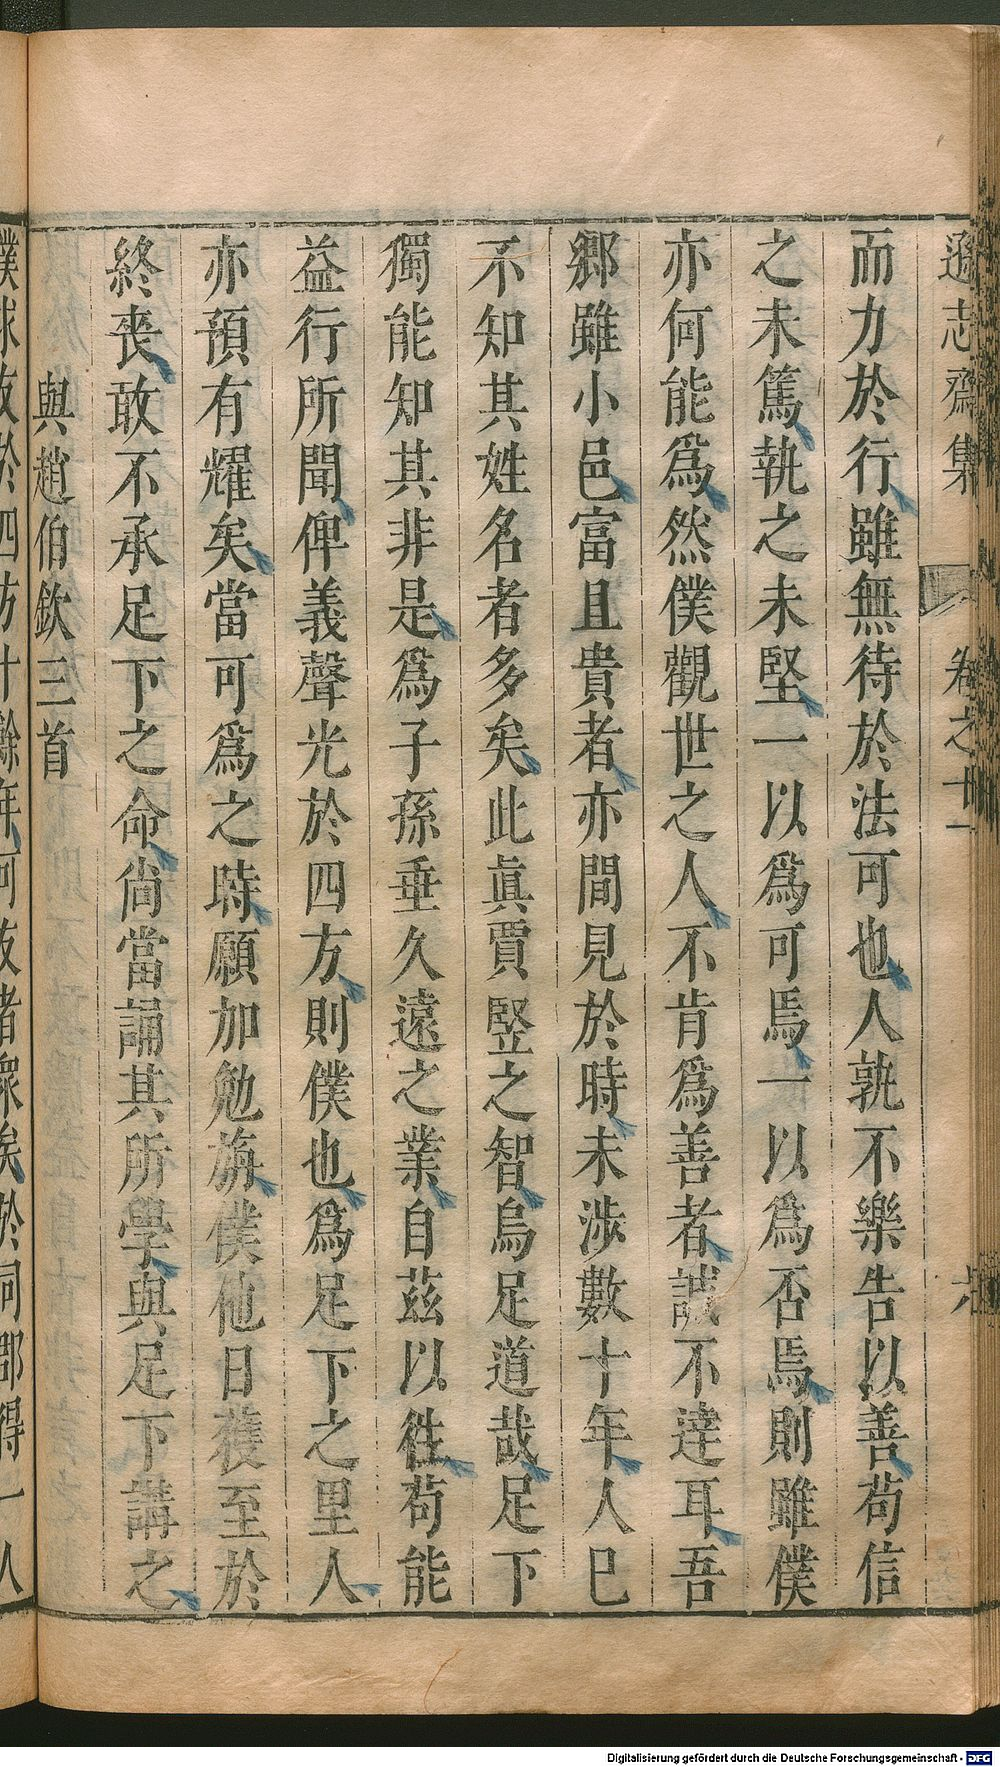 遜志齋集 卷之十一
而力於行雖無待於法可也人孰不樂告以善苟信
之未篤執之未堅一以爲可焉一以爲否焉則雖僕
亦何能爲然僕觀世之人不肯爲善者誠不達耳吾
鄉雖小邑富且貴者亦間見於時未涉數十年人巳
不知其姓名者多矣此眞賈竪之智烏足道哉足下
獨能知其非是爲子孫垂久遠之業自茲以徃苟能
益行所聞俾義聲光於四方則僕也爲足下之里人
亦預有耀矣當可爲之時願加勉旃僕他日獲至於
終喪敢不承足下之命尚當誦其所學與足下講之
與趙伯欽三首
僕求友於四方十餘年可友者衆矣於同郡得一人
Digitalisierung gefördert durch die Deutsche Forschungsgemeinschaft - DFG